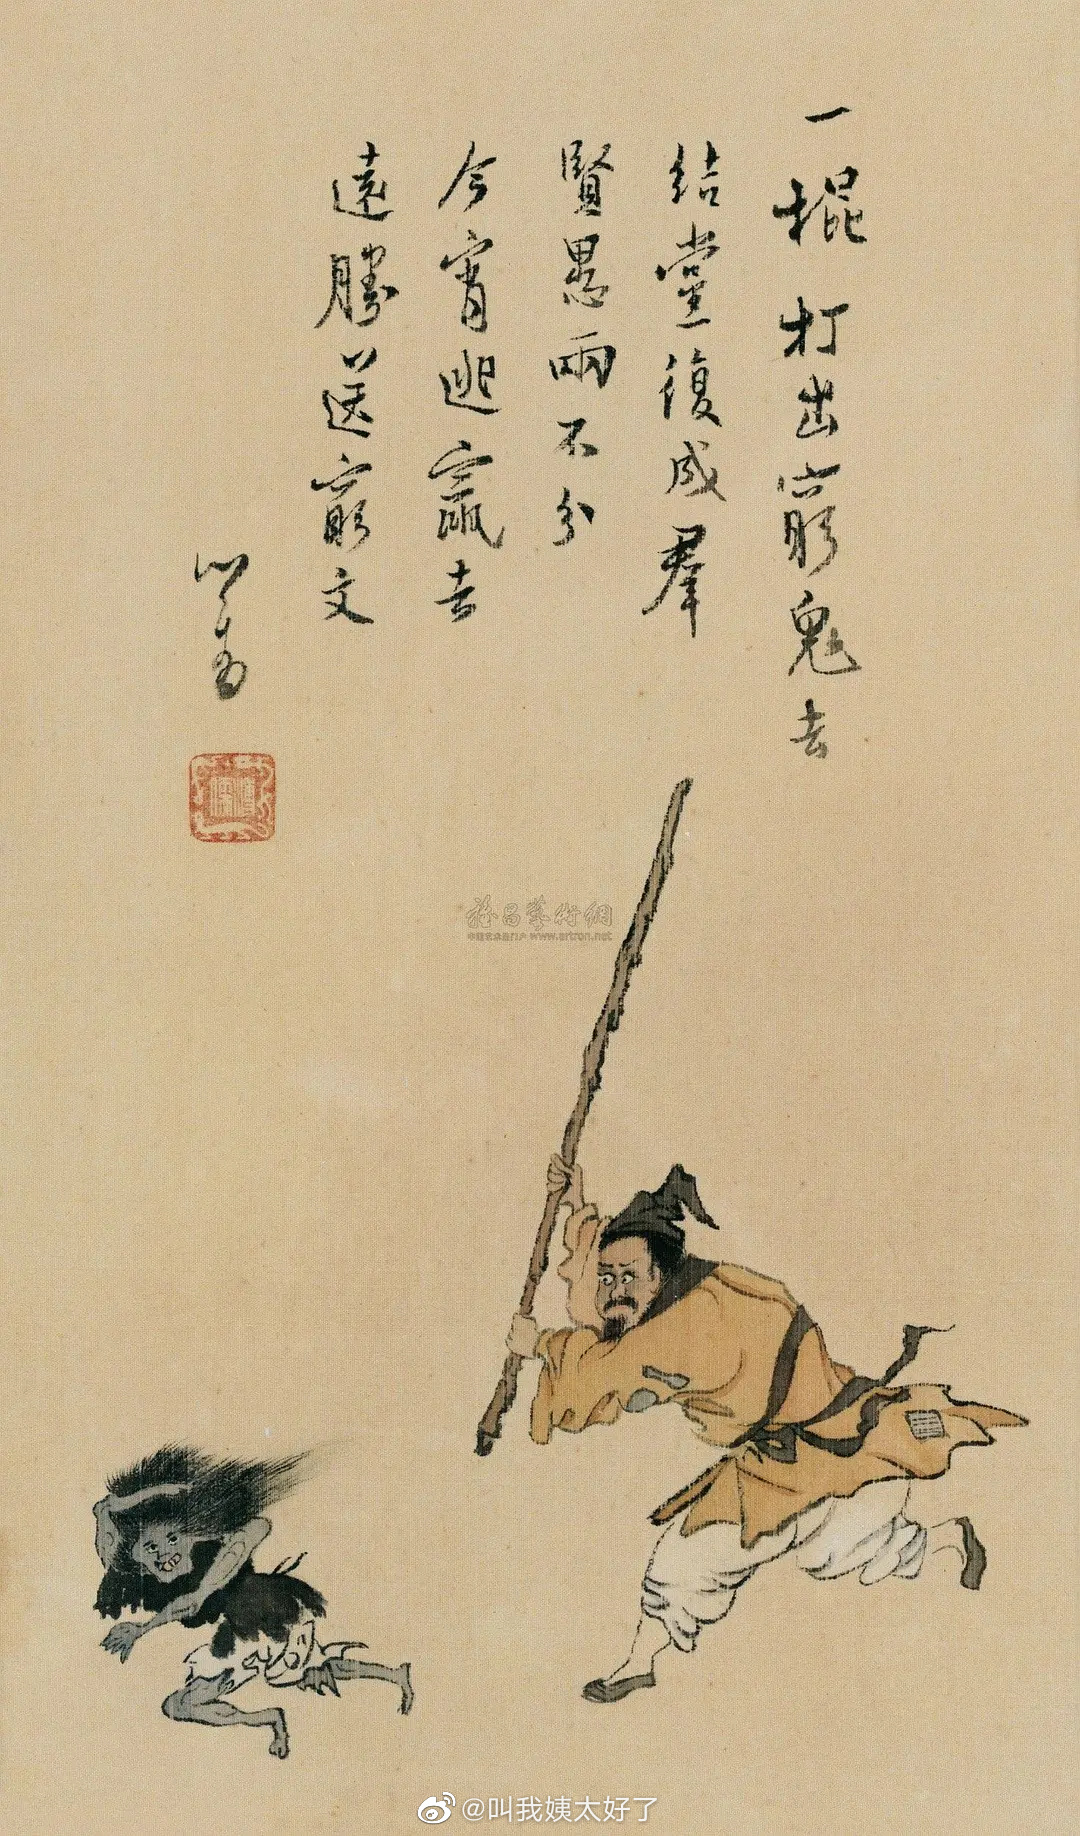 一棍打出窮鬼去
結黨復成羣
賢愚兩不分
今宵逃竄去
遠勝送窮文
心畬
溥儒
雅昌藝術網
www.artron.net
@叫我姨太好了